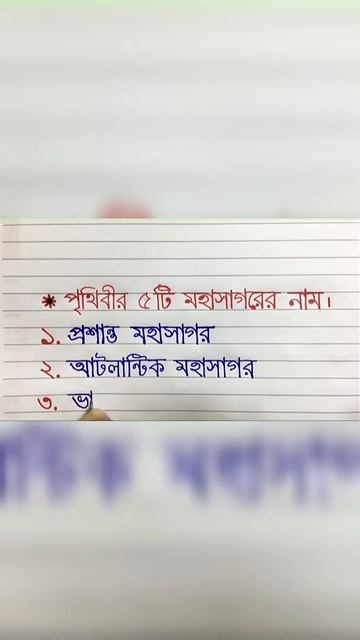 * পৃথিবীর ৫টি মহাসাগরের নাম।
১. প্রশান্ত মহাসাগর
২. আটলান্টিক মহাসাগর
৩. ভা